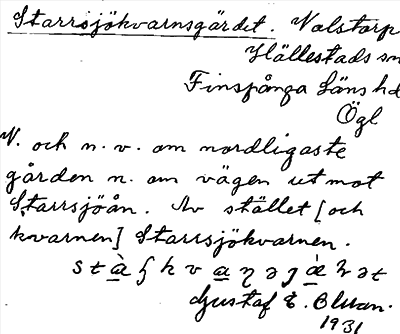 Starrsjökvarnsgärdet. Valstorp
Hällestads sn
Finspånga läns hd
Ögl
N. och n. v. om nordligaste
gården n. om vägen ut mot
Starrsjöån. Av stället [och
kvarnen] Starrsjökvarnen.
Gustaf E. Bluan.
1931